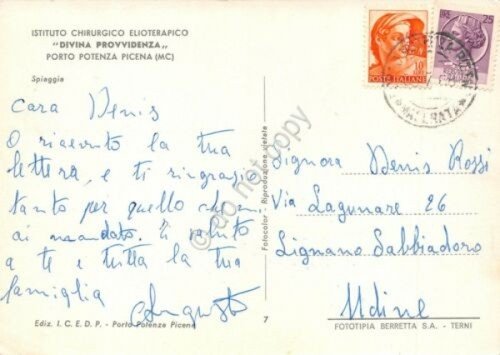 ISTITUTO CHIRURGICO ELIOTERAPICO
"DIVINA PROVVIDENZA"
PORTO POTENZA PICENA (MC)
Spiaggia
Cara Denis
O ricevuto la tua
lettera, e ti ringrazio
tanto per quello che m
ai mandato. Ti saluto
a te e tutta la tua
famiglia
Ediz. I. C. E. D. P. - Porto Potenza Picena
Fotocolor - Riproduzione vietata
7
10
POSTE ITALIANE
25
MACERATA
Signora Denis Rossi
Via Lagunare 26
Lignano Sabbiadoro
Udine
FOTOTIPIA BERRETTA S.A. - TERNI
do not copy